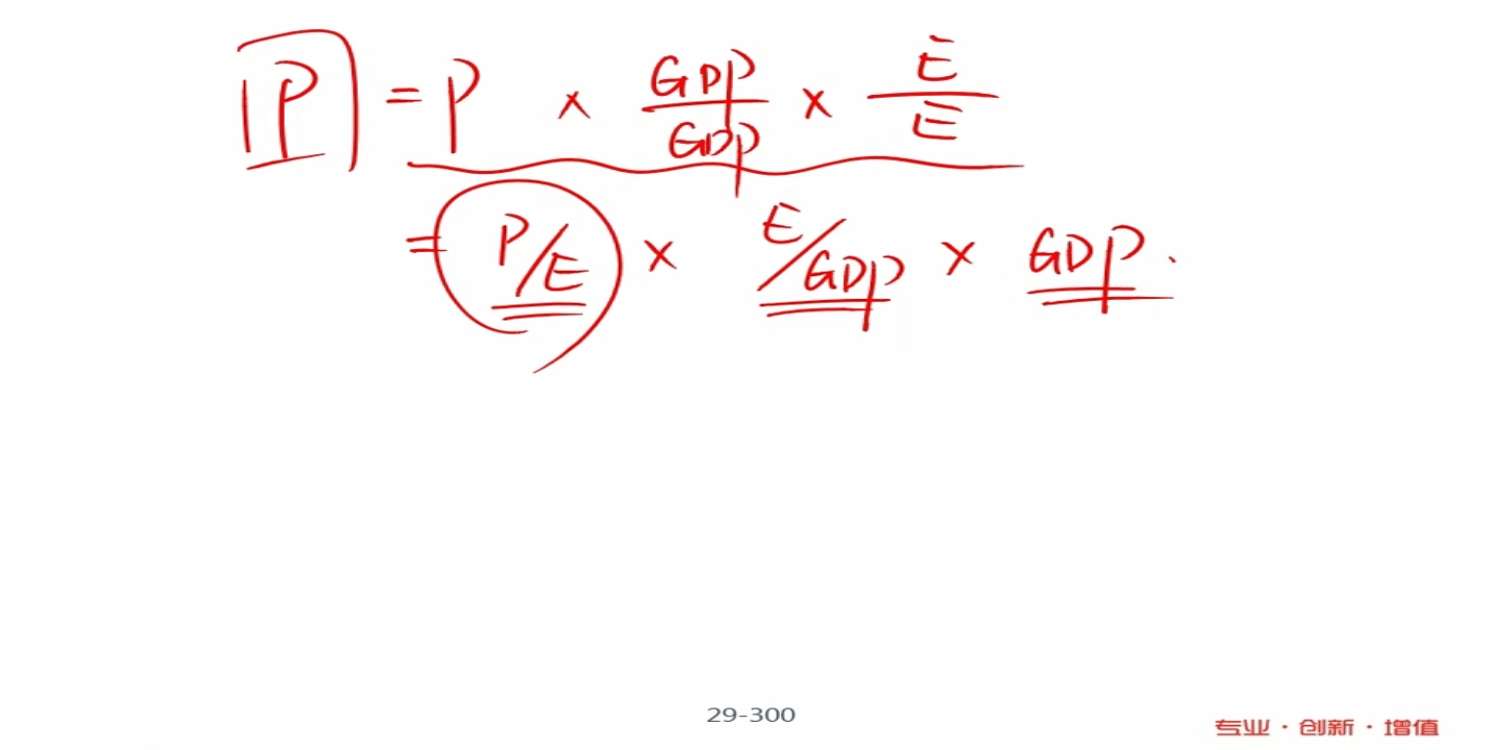 P = P × GDP/GDP × E/E
= P/E × E/GDP × GDP.
29-300
专业·创新·增值